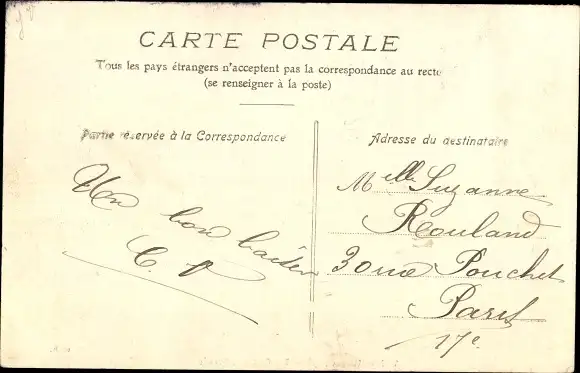 CARTE POSTALE
Tous les pays étrangers n'acceptent pas la correspondance au recto
(se renseigner à la poste)
Partie réservée à la Correspondance
Un bon baiser
C. P
Adresse du destinataire
Melle Suzanne
Rouland
30 rue Pouchet
Paris
17e.